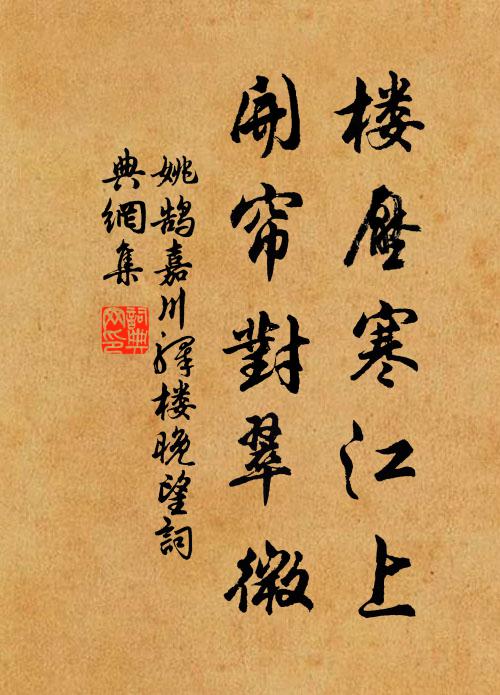 楼压寒江上
开帘對翠微
姚鹄嘉川驿楼晚望詞
典網集
詞典網印